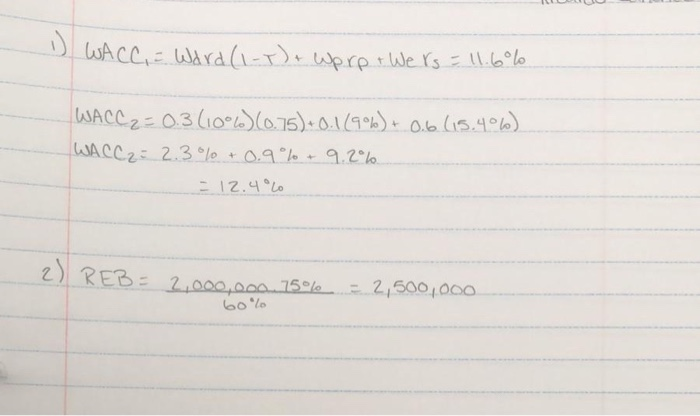 1) WACC₁ = Wdrd(1-T) + Wprp + Wers = 11.6%
WACC₂ = 0.3(10%)(0.75) + 0.1(9%) + 0.6(15.4%)
WACC₂ = 2.3% + 0.9% + 9.2%
= 12.4%
2) REB = 2,000,000 · 75% = 2,500,000
60%